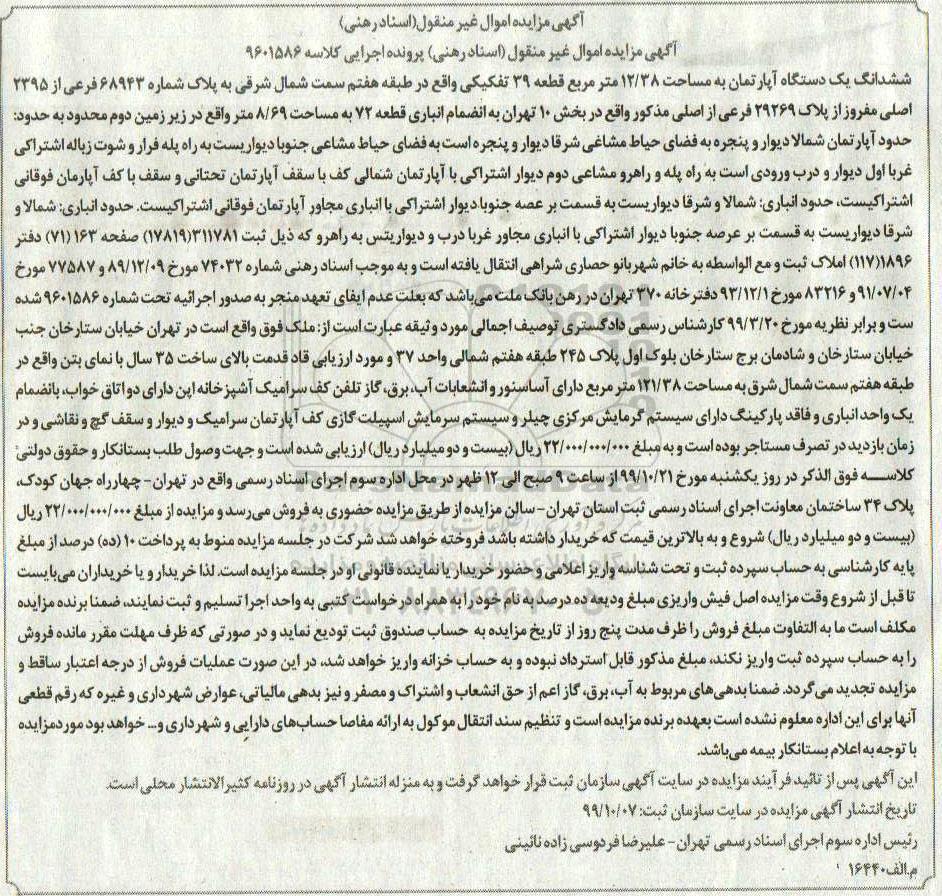 آگهی مزایده اموال غیر منقول(اسناد رهنی)
آگهی مزایده اموال غیر منقول (اسناد رهنی) پرونده اجرایی کلاسه ۹۶۰۱۵۸۶
ششدانگ یک دستگاه آپارتمان به مساحت ۱۲/۳۸ متر مربع قطعه ۳۹ تفکیکی واقع در طبقه هفتم سمت شمال شرقی به پلاک شماره ۶۸۹۴۳ فرعی از ۲۳۹۵
اصلی مفروز از پلاک ۲۹۲۶۹ فرعی از اصلی مذکور واقع در بخش ۱۰ تهران به انضمام انباری قطعه ۷۲ به مساحت ۸/۶۹ متر واقع در زیر زمین دوم محدود به حدود:
حدود آپارتمان شمالا دیوار و پنجره به فضای حیاط مشاغی شرقا دیوار و پنجره است به فضای حیاط مشاعی جنوبا دیواریست به راه پله فرار و شوت زباله اشتراکی
غربا اول دیوار و درب ورودی است به راه پله و راهرو مشاعی دوم دیوار اشتراکی با آپارتمان شمالی کف با سقف آپارتمان تحتانی و سقف با کف آپارمان فوقانی
اشتراکیست، حدود انباری: شمالا و شرقا دیواریست به قسمت بر عصه جنوبا دیوار اشتراکی با انباری مجاور آپارتمان فوقانی اشتراکیست. حدود انباری: شمالا و
شرقا دیواریست به قسمت بر عرصه جنوبا دیوار اشتراکی با انباری مجاور غربا درب و دیواریتس به راهرو که ذیل ثبت ۳۱۱۷۸۱(۱۷۸۱۹) صفحه ۱۶۳ (۷۱) دفتر
۱۸۹۶(۱۱۷) املاک ثبت و مع الواسطه به خانم شهربانو حصاری شراهی انتقال یافته است و به موجب اسناد رهنی شماره ۷۴۰۳۲ مورخ ۸۹/۱۲/۰۹ و ۷۷۵۸۷ مورخ
۹۱/۰۷/۰۴ و ۸۳۲۱۶ مورخ ۹۳/۱۲/۱ دفترخانه ۳۷۰ تهران در رهن بانک ملت می‌باشد که بعلت عدم ایفای تعهد منجر به صدور اجرائیه تحت شماره ۹۶۰۱۵۸۶ شده
ست و برابر نظریه مورخ ۹۹/۳/۲۰ کارشناس رسمی دادگستری توصیف اجمالی مورد وثیقه عبارت است از: ملک فوق واقع است در تهران خیابان ستارخان جنب
خیابان ستارخان و شادمان برج ستارخان بلوک اول پلاک ۲۴۵ طبقه هفتم شمالی واحد ۳۷ و مورد ارزیابی قاد قدمت بالای ساخت ۳۵ سال با نمای بتن واقع در
طبقه هفتم سمت شمال شرق به مساحت ۱۲۱/۳۸ متر مربع دارای آساسنور و انشعابات آب، برق، گاز تلفن کف سرامیک آشپزخانه اپن دارای دو اتاق خواب، بانضمام
یک واحد انباری و فاقد پارکینگ دارای سیستم گرمایش مرکزی چیلر و سیستم سرمایش اسپیلت گازی کف آپارتمان سرامیک و دیوار و سقف گچ و نقاشی و در
زمان بازدید در تصرف مستاجر بوده است و به مبلغ ۲۲/۰۰۰/۰۰۰/۰۰۰ ریال (بیست و دو میلیارد ریال) ارزیابی شده است و جهت وصول طلب بستانکار و حقوق دولتی
کلاســـه فوق الذکر در روز یکشنبه مورخ ۹۹/۱۰/۲۱ از ساعت ۹ صبح الی ۱۲ ظهر در محل اداره سوم اجرای اسناد رسمی واقع در تهران- چهارراه جهان کودک،
پلاک ۳۴ ساختمان معاونت اجرای اسناد رسمی ثبت استان تهران- سالن مزایده از طریق مزایده حضوری به فروش می‌رسد و مزایده از مبلغ ۲۲/۰۰۰/۰۰۰/۰۰۰ ریال
(بیست و دو میلیارد ریال) شروع و به بالاترین قیمت که خریدار داشته باشد فروخته خواهد شد شرکت در جلسه مزایده منوط به پرداخت ۱۰ (ده) درصد از مبلغ
پایه کارشناسی به حساب سپرده ثبت و تحت شناسه واریز اعلامی و حضور خریدار یا نماینده قانونی او در جلسه مزایده است. لذا خریدار و یا خریداران می‌بایست
تا قبل از شروع وقت مزایده اصل فیش واریزی مبلغ ودیعه ده درصد به نام خود را به همراه درخواست کتبی به واحد اجرا تسلیم و ثبت نمایند، ضمنا برنده مزایده
مکلف است ما به التفاوت مبلغ فروش را ظرف مدت پنج روز از تاریخ مزایده به حساب صندوق ثبت تودیع نماید و در صورتی که ظرف مهلت مقرر مانده فروش
را به حساب سپرده ثبت واریز نکند، مبلغ مذکور قابل استرداد نبوده و به حساب خزانه واریز خواهد شد، در این صورت عملیات فروش از درجه اعتبار ساقط و
مزایده تجدید می‌گردد. ضمنا بدهی‌های مربوط به آب، برق، گاز اعم از حق انشعاب و اشتراک و مصفر و نیز بدهی مالیاتی، عوارض شهرداری و غیره که رقم قطعی
آنها برای این اداره معلوم نشده است بعهده برنده مزایده است و تنظیم سند انتقال موکول به ارائه مفاصا حساب‌های دارایی و شهرداری و... خواهد بود مورد مزایده
با توجه به اعلام بستانکار بیمه می‌باشد.
این آگهی پس از تائید فرآیند مزایده در سایت آگهی سازمان ثبت قرار خواهد گرفت و به منزله انتشار آگهی در روزنامه کثیرالانتشار محلی است.
تاریخ انتشار آگهی مزایده در سایت سازمان ثبت: ۹۹/۱۰/۰۷
رئیس اداره سوم اجرای اسناد رسمی تهران- علیرضا فردوسی زاده نائینی
م.الف ۱۶۴۴۰